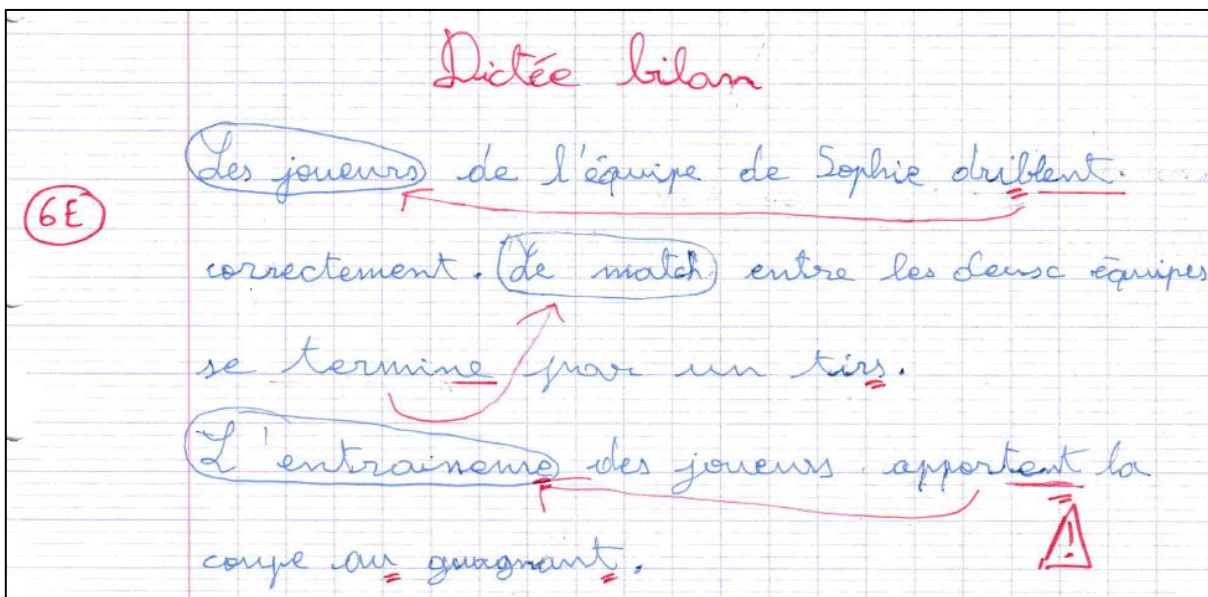 Dictée bilan
Les joueurs de l'équipe de Sophie driblent
6E
correctement. Le match entre les deux équipes
se termine par un tirs.
L'entraineure des joueurs apportent la
coupe au guagnant.